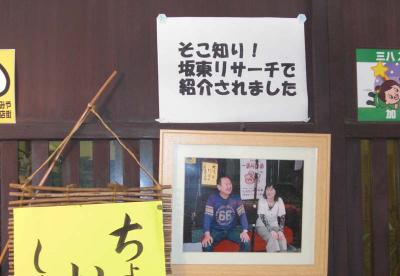 そこ知り！
坂東リサーチで
紹介されました
三八
加
みや
店街
ちょ
い
し
66